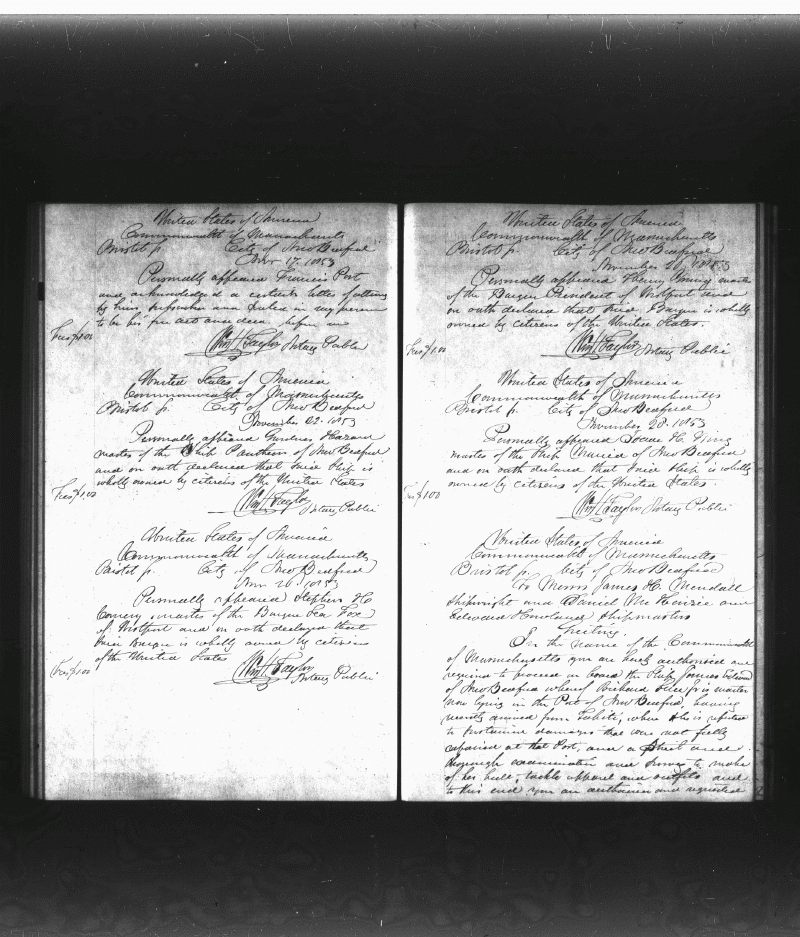 United States of America
Commonwealth of Massachusetts
Bristol ss. City of New Bedford
Nov 17. 1853
Personally appeared Francis Post
and acknowledged a certain letter of attorney
by him subscribed and sealed in my presence
to be his free act and deed before me
Fees $1.00
Wm H Taylor Notary Public
United States of America
Commonwealth of Massachusetts
Bristol ss. City of New Bedford
November 22. 1853
Personally appeared Hazard
master of the Ship Pantheon of New Bedford
and on oath declared that said Ship is
wholly owned by citizens of the United States
Fees $1.00
Wm H Taylor Notary Public
United States of America
Commonwealth of Massachusetts
Bristol ss. City of New Bedford
Nov 26. 1853
Personally appeared Stephen H
master of the Barque Sea Fox
of Westport and on oath declared that
said Barque is wholly owned by citizens
of the United States
Fees $1.00
Wm H Taylor
Notary Public
United States of America
Commonwealth of Massachusetts
Bristol ss. City of New Bedford
November 1853
Personally appeared master
of the Barque President of Westport and
on oath declared that said Barque is wholly
owned by citizens of the United States.
Fees $1.00
Wm H Taylor Notary Public
United States of America
Commonwealth of Massachusetts
Bristol ss. City of New Bedford
November 28. 1853
Personally appeared Isaac H.
master of the Ship of New Bedford
and on oath declared that said Ship is wholly
owned by citizens of the United States.
Fees $1.00
Wm H Taylor Notary Public
United States of America
Commonwealth of Massachusetts
Bristol ss. City of New Bedford
To Messrs James H. Mendall
Shipwright and Daniel McKenzie and
Edward Howland Shipmasters
Greeting.
In the name of the Commonwealth
of Massachusetts you are hereby authorised and
required to proceed on board the Ship James
of New Bedford whereof Richard is master
now lying in the Port of New Bedford, having
recently arrived from Tahiti, where she is reported
to sustained damages that were not fully
repaired at that Port, and a strict and
thorough examination and survey to make
of her hull, tackle apparel and outfits and
to this end you are authorised and requested